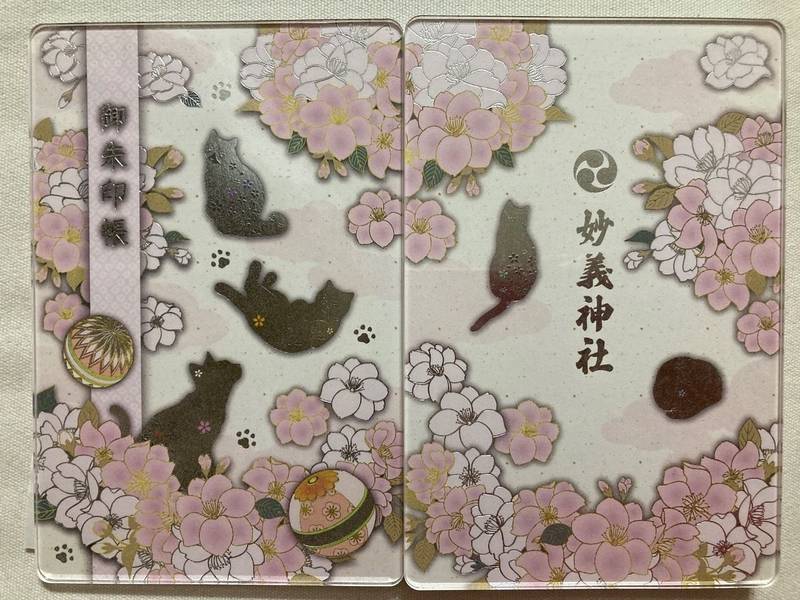 御朱印帳
妙義神社